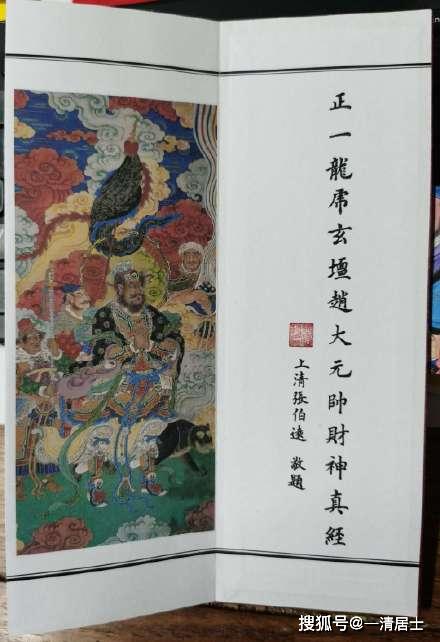 正一龍虎玄壇趙大元帥財神真經
上清張伯遠 敬題
搜狐号@一清居士